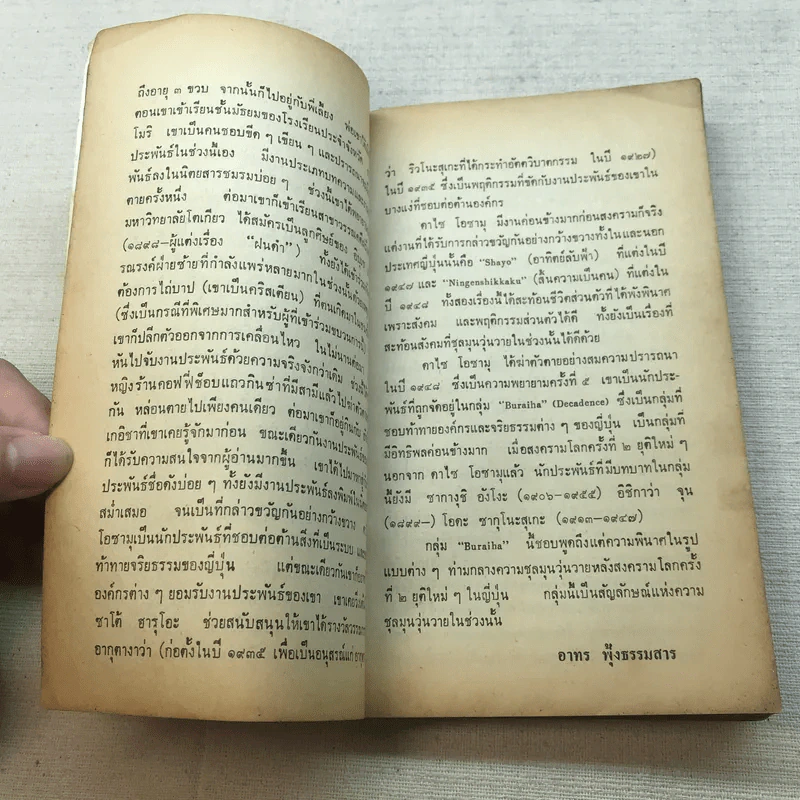 ถึงอายุ ๓ ขวบ จากนั้นก็ไปอยู่กับพี่เลี้ยง
ตอนเขาเข้าเรียนชั้นมัธยมของโรงเรียนประจำจังหวัด
โมริ เขาเป็นคนชอบขีด ๆ เขียน ๆ และปรารถนา
ประพันธ์ในช่วงนี้เอง มีงานประเภทบทความและ
พันธ์ลงในนิตยสารชมรมบ่อย ๆ ช่วงนี้เขาได้พยายาม
ตายครั้งหนึ่ง ต่อมาเขาก็เข้าเรียนสาขาวรรณคดี
มหาวิทยาลัยโตเกียว ได้สมัครเป็นลูกศิษย์ของ
(๑๘๙๘-ผู้แต่งเรื่อง "ฝนดำ") ทั้งยังได้เข้าร่วม
รณรงค์ฝ่ายซ้ายที่กำลังแพร่หลายมากในช่วงนั้นด้วย
ต้องการไถ่บาป (เขาเป็นคริสเตียน) ที่ตนเกิดมาใน
(ซึ่งเป็นกรณีที่พิเศษมากสำหรับผู้ที่เข้าร่วมขบวนการ
เขาก็ปลีกตัวออกจากการเคลื่อนไหว ในไม่นานต่อมา
หันไปจับงานประพันธ์ด้วยความจริงจังกว่าเดิม ช่วงนี้
หญิงร้านคอฟฟี่ช็อบแถวกินซ่าที่มีสามีแล้วไปฆ่าตัวตาย
กัน หล่อนตายไปเพียงคนเดียว ต่อมาเขาก็อยู่กินกับ
เกอิชาที่เขาเคยรู้จักมาก่อน ขณะเดียวกันงานประพันธ์ของ
ก็ได้รับความสนใจจากผู้อ่านมากขึ้น เขาได้ไปมาหาสู่
ประพันธ์ชื่อดังบ่อย ๆ ทั้งยังมีงานประพันธ์ลงพิมพ์ใน
สม่ำเสมอ จนเป็นที่กล่าวขวัญกันอย่างกว้างขวาง
โอซามุเป็นนักประพันธ์ที่ชอบต่อต้านสิ่งที่เป็นระบบ และ
ท้าทายจริยธรรมของญี่ปุ่น แต่ขณะเดียวกันเขาก็อยาก
องค์กรต่าง ๆ ยอมรับงานประพันธ์ของเขา เขาเคย
ซาโต้ ฮารุโอะ ช่วยสนับสนุนให้เขาได้รางวัลวรรณกรรม
อากุตางาว่า (ก่อตั้งในปี ๑๙๓๕ เพื่อเป็นอนุสรณ์แก่
ว่า ริวโนะสุเกะที่ได้กระทำอัตตวิบาตกรรม ในปี ๑๙๒๗)
ในปี ๑๙๓๕ ซึ่งเป็นพฤติกรรมที่ขัดกับงานประพันธ์ของเขาใน
บางแง่ที่ชอบต่อต้านองค์กร
ดาไซ โอซามุ มีงานค่อนข้างมากก่อนสงครามก็จริง
แต่งานที่ได้รับการกล่าวขวัญกันอย่างกว้างขวางทั้งในและนอก
ประเทศญี่ปุ่นนั้นคือ "Shayo" (อาทิตย์ลับฟ้า) ที่แต่งในปี
๑๙๔๗ และ "Ningenshikkaku" (สิ้นความเป็นคน) ที่แต่งใน
ปี ๑๙๔๘ ทั้งสองเรื่องนี้ได้สะท้อนชีวิตส่วนตัวที่ได้พังพินาศ
เพราะสังคม และพฤติกรรมส่วนตัวได้ดี ทั้งยังเป็นเรื่องที่
สะท้อนสังคมที่ชุลมุนวุ่นวายในช่วงนั้นได้ดีด้วย
ดาไซ โอซามุ ได้ฆ่าตัวตายอย่างสมความปรารถนา
ในปี ๑๙๔๘ ซึ่งเป็นความพยายามครั้งที่ ๕ เขาเป็นนักประ-
พันธ์ที่ถูกจัดอยู่ในกลุ่ม "Buraiha" (Decadence) ซึ่งเป็นกลุ่มที่
ชอบท้าทายองค์กรและจริยธรรมต่าง ๆ ของญี่ปุ่น เป็นกลุ่มที่
มีอิทธิพลค่อนข้างมาก เมื่อสงครามโลกครั้งที่ ๒ ยุติใหม่ ๆ
นอกจาก ดาไซ โอซามุแล้ว นักประพันธ์ที่มีบทบาทในกลุ่ม
นี้ยังมี ซากางุชิ อังโงะ (๑๙๐๖-๑๙๕๕) อิชิกาว่า จุน
(๑๘๙๙-) โอดะ ซากุโนะสุเกะ (๑๙๑๓-๑๙๔๗)
กลุ่ม "Buraiha" นี้ชอบพูดถึงแต่ความพินาศในรูป
แบบต่าง ๆ ท่ามกลางความชุลมุนวุ่นวายหลังสงครามโลกครั้ง
ที่ ๒ ยุติใหม่ ๆ ในญี่ปุ่น กลุ่มนี้เป็นสัญลักษณ์แห่งความ
ชุลมุนวุ่นวายในช่วงนั้น
อาทร ฟุ้งธรรมสาร